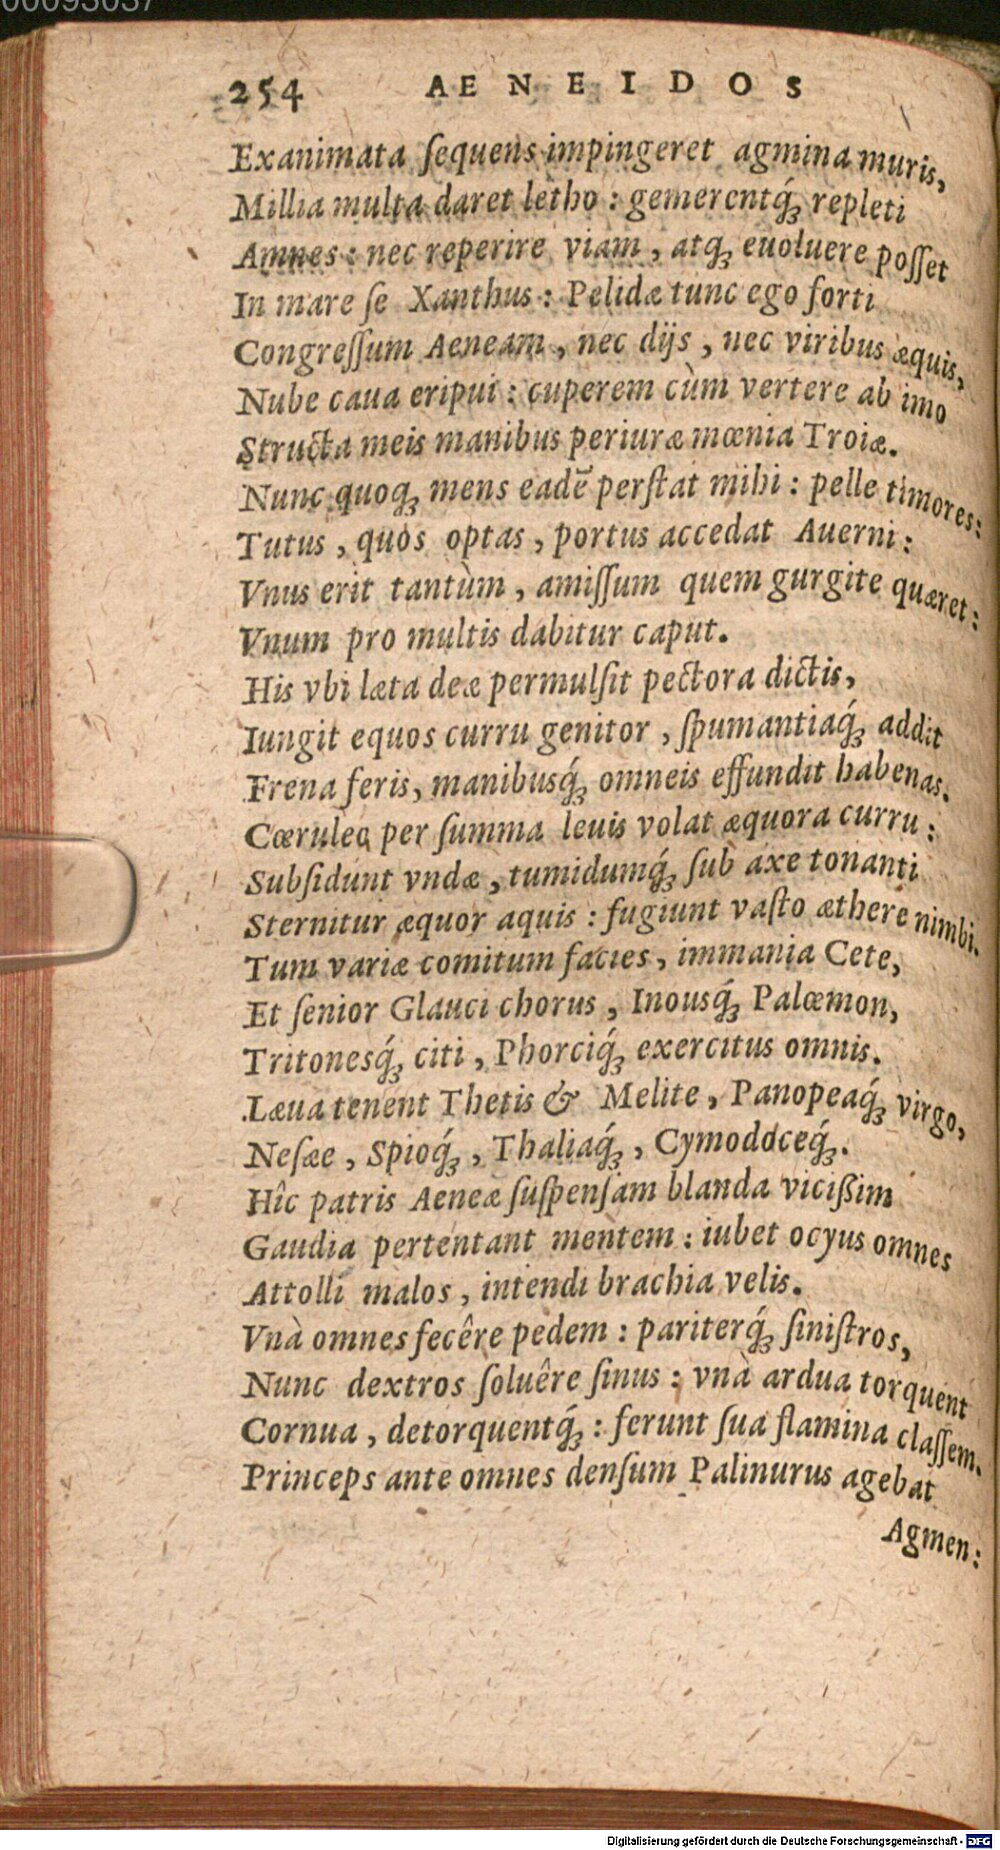 254 AENEIDOS
Exanimata ſequens impingeret agmina muris,
Millia multa daret letho : gemerentq́ꝫ repleti
Amnes : nec reperire viam , atqꝫ euoluere poſſet
In mare ſe Xanthus : Pelidæ tunc ego forti
Congreſſum Aeneam , nec dijs , nec viribus æquis,
Nube caua eripui : cuperem cùm vertere ab imo
Structa meis manibus periuræ mœnia Troiæ.
Nunc quoqꝫ mens eadẽ perſtat mihi : pelle timores:
Tutus , quos optas , portus accedat Auerni :
Vnus erit tantùm , amiſſum quem gurgite quæret :
Vnum pro multis dabitur caput.
His vbi læta deæ permulſit pectora dictis,
Iungit equos curru genitor , ſpumantiaq́ꝫ addit
Frena feris, manibusq́ꝫ omneis effundit habenas.
Cœruleo per ſumma leuis volat æquora curru :
Subſidunt vndæ , tumidumq́ꝫ ſub axe tonanti
Sternitur æquor aquis : fugiunt vaſto æthere nimbi.
Tum variæ comitum facies , immania Cete,
Et ſenior Glauci chorus , Inousq́ꝫ Palœmon,
Tritonesq́ꝫ citi , Phorciq́ꝫ exercitus omnis.
Læua tenent Thetis & Melite , Panopeaq́ꝫ virgo,
Neſæe , Spioq́ꝫ , Thaliaq́ꝫ , Cymodoceq́ꝫ.
Hîc patris Aeneæ ſuſpenſam blanda vicißim
Gaudia pertentant mentem : iubet ocyus omnes
Attolli malos , intendi brachia velis.
Vnà omnes fecêre pedem : pariterq́ꝫ ſiniſtros,
Nunc dextros ſoluêre ſinus : vnà ardua torquent
Cornua , detorquentq́ꝫ : ferunt ſua flamina claſſem.
Princeps ante omnes denſum Palinurus agebat
Agmen :
Digitalisierung gefördert durch die Deutsche Forschungsgemeinschaft - DFG